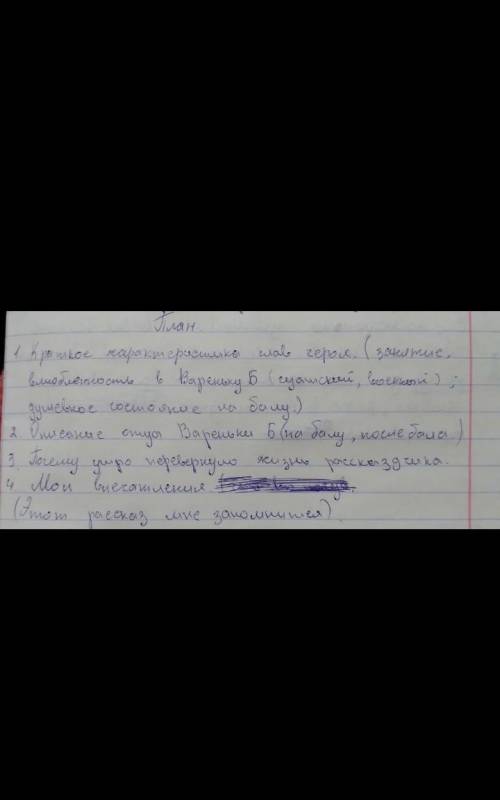 План
1. Краткое характеристика глав героя. (занятие,
влюбленность в Вареньку Б (штатский, военный);
душевное состояние на балу.)
2. Описание отца Вареньки Б (на балу, после бала.)
3. Почему утро перевернуло жизнь рассказдчика.
4 Мои впечатления.
(Этот рассказ мне запомнился)